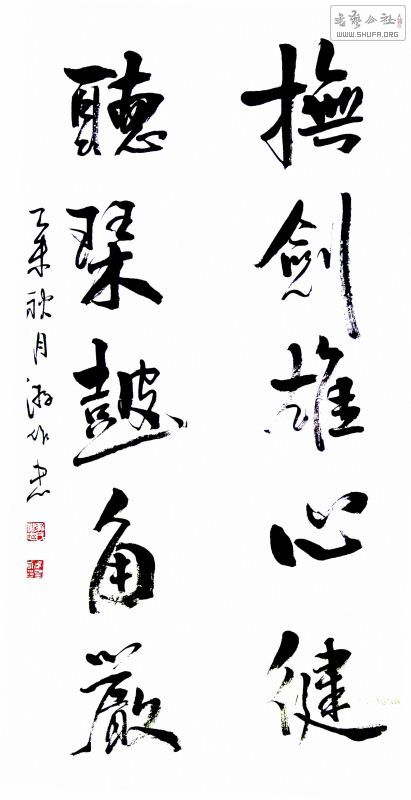 書藝公社
WWW.SHUFA.ORG
撫劍雄心健
聽琹皷角嚴
乙未秋月